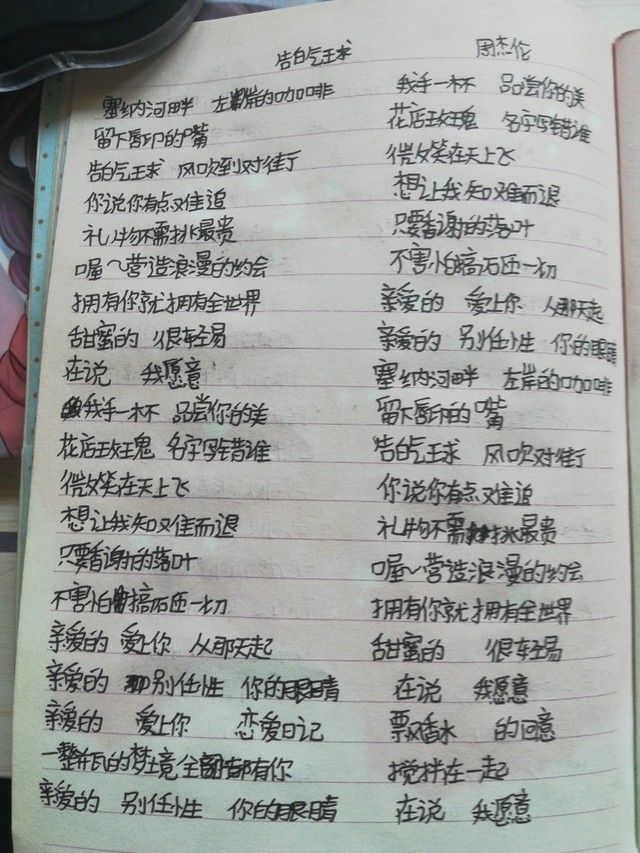 告白气球 周杰伦
塞纳河畔 左岸的咖啡
留下唇印的嘴
告白气球 风吹到对街
你说你有点难追
礼物不需挑最贵
喔~营造浪漫的约会
拥有你就拥有全世界
甜蜜的 很轻易
在说 我愿意
我手一杯 品尝你的美
花店玫瑰 名字写错谁
微笑在天上飞
想让我知难而退
只要香谢的落叶
不害怕搞砸一切
亲爱的 爱上你 从那天起
亲爱的 别任性 你的眼睛
亲爱的 爱上你 恋爱日记
一整瓶的梦境全都有你
亲爱的 别任性 你的眼睛
我手一杯 品尝你的美
花店玫瑰 名字写错谁
微笑在天上飞
想让我知难而退
只要香谢的落叶
不害怕搞砸一切
亲爱的 爱上你 从那天起
亲爱的 别任性 你的眼睛
塞纳河畔 左岸的咖啡
留下唇印的嘴
告白气球 风吹对街
你说你有点难追
礼物不需挑最贵
喔~营造浪漫的约会
拥有你就拥有全世界
甜蜜的 很轻易
在说 我愿意
飘香水 的回意
搅拌在一起
在说 我愿意